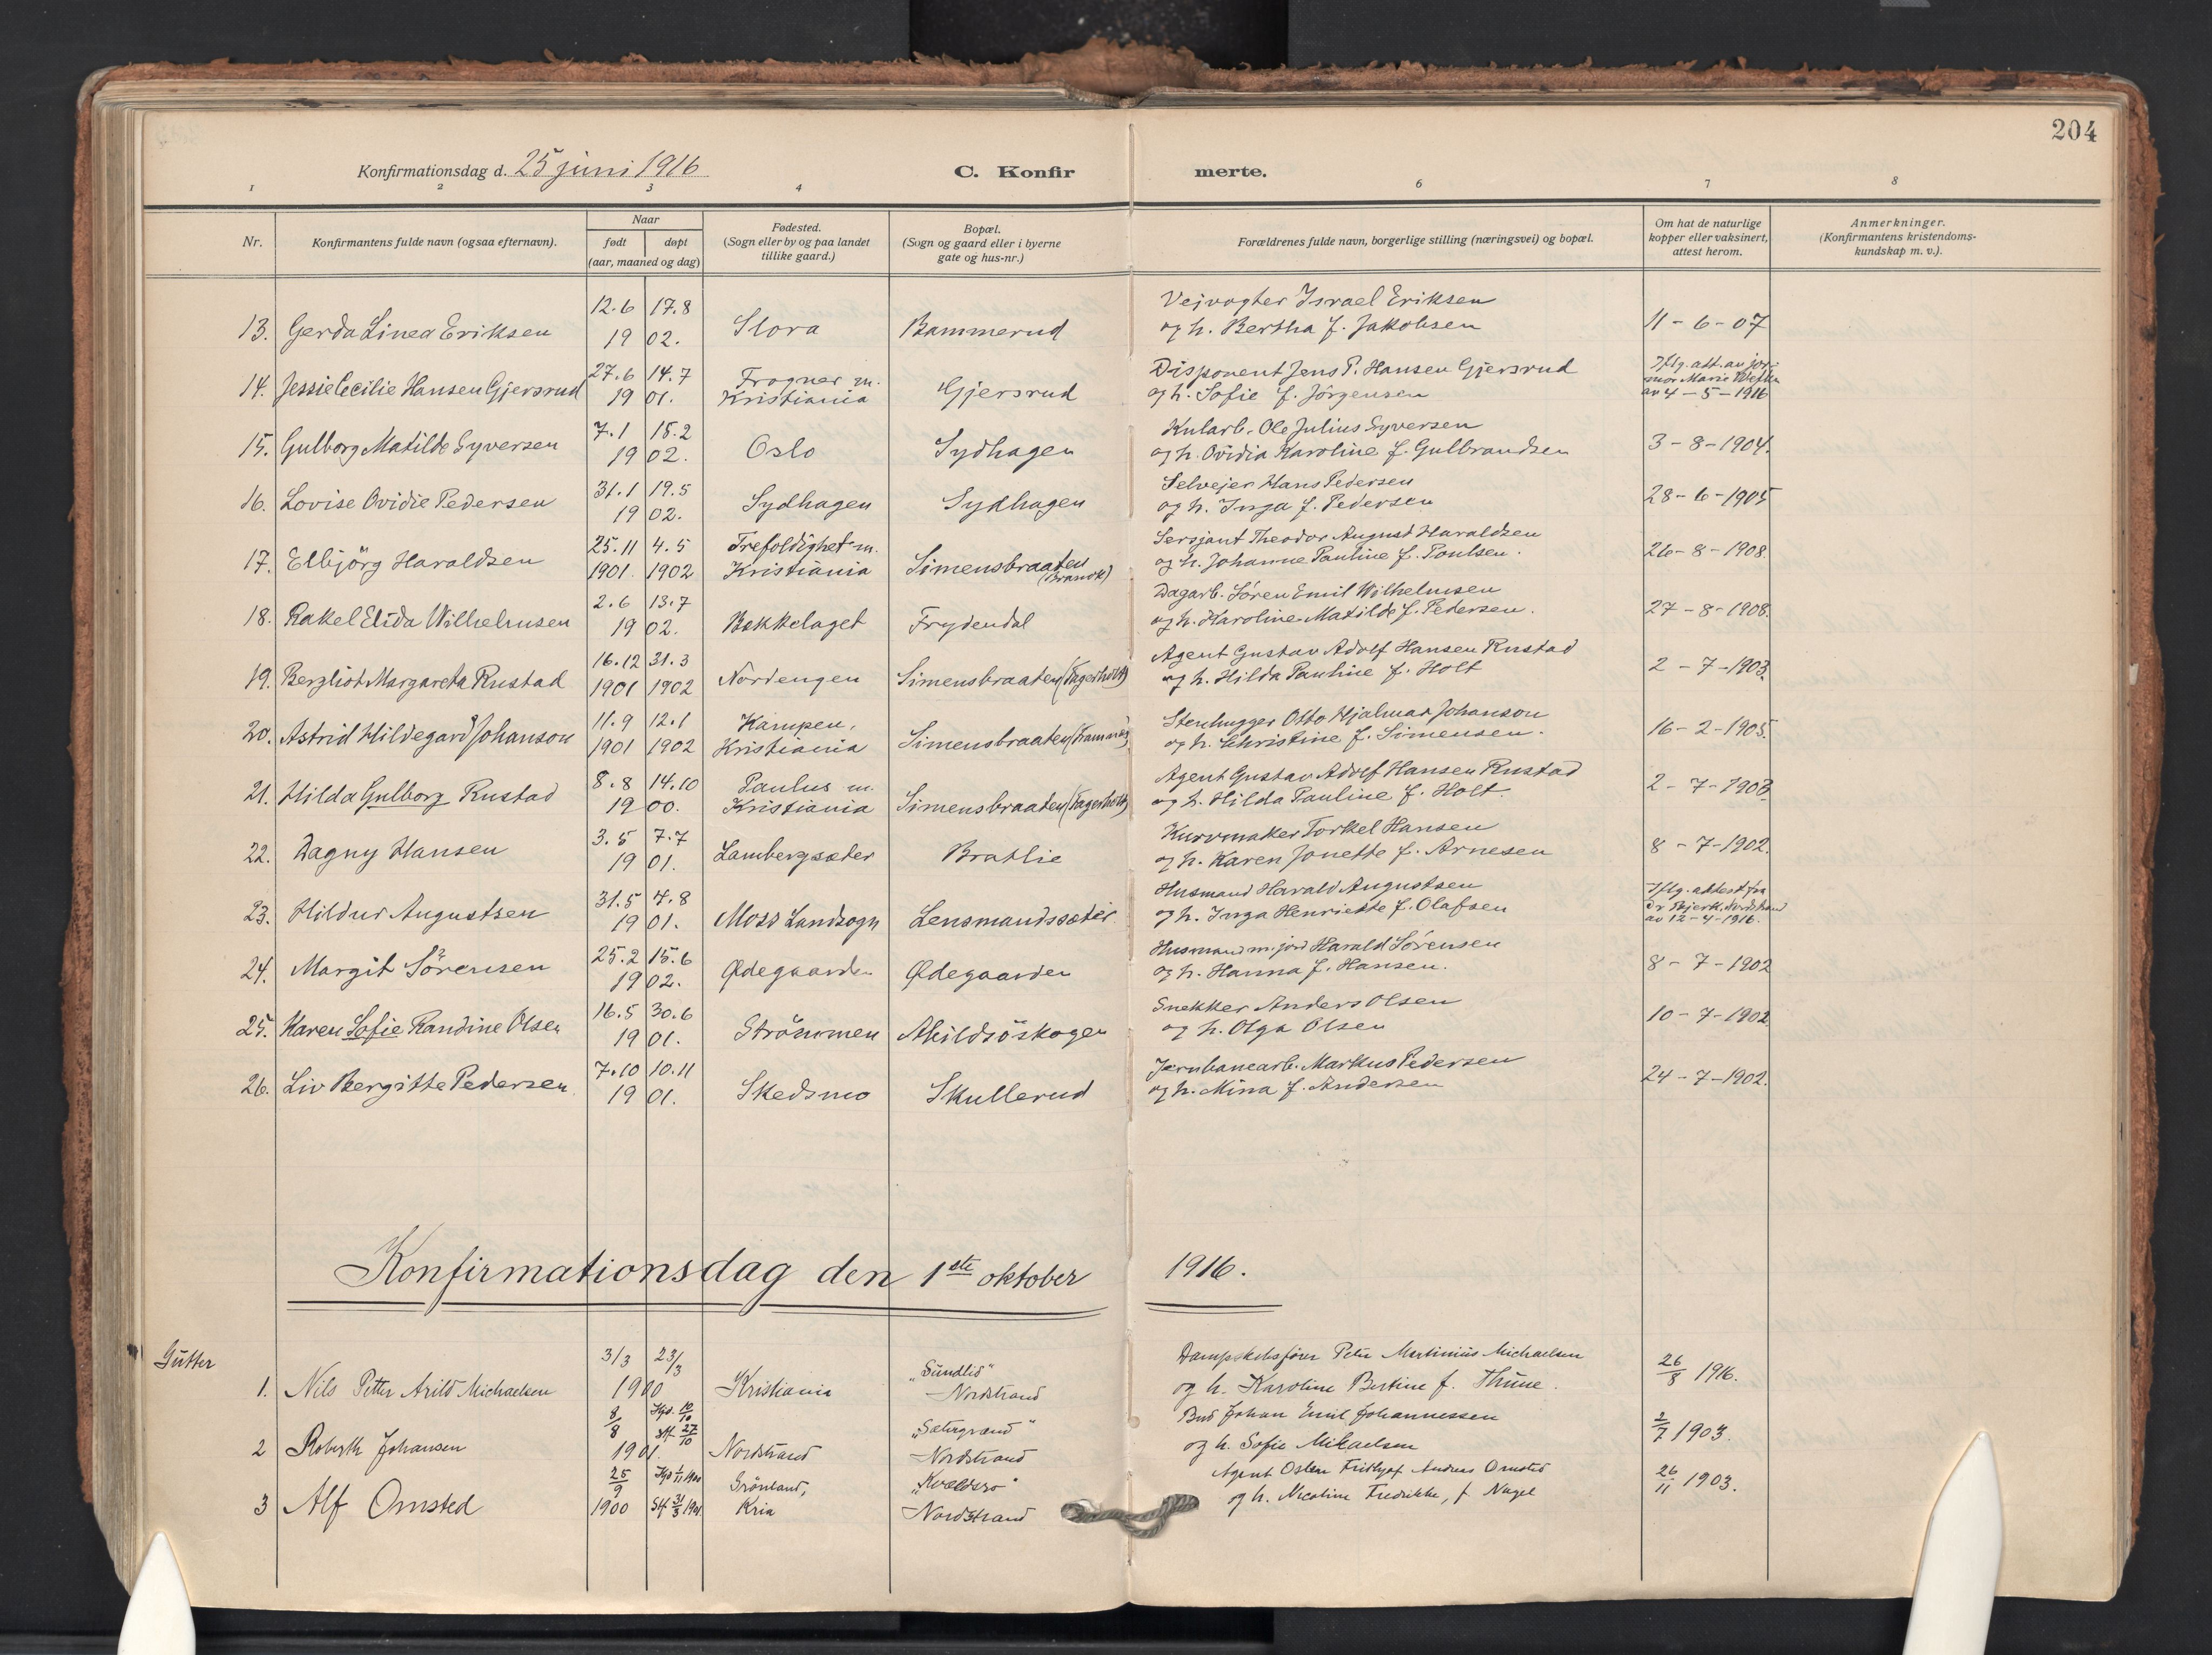 204
Konfirmationsdag d. 25 juni 1916 C. Konfir merte.
1 2 3 4 6 7 8
Nr. Konfirmantens fulde navn (ogsaa efternavn). Naar født døpt (aar, maaned og dag) Fødested. (Sogn eller by og paa landet tillike gaard.) Bopæl. (Sogn og gaard eller i byerne gate og hus-nr.) Forældrenes fulde navn, borgerlige stilling (næringsvei) og bopæl. Om hat de naturlige kopper eller vaksinert, attest herom. Anmerkninger. (Konfirmantens kristendomskundskap m. v.).
12.6 17.8 Veivogter Israel Eriksen
13. Gerda Linea Eriksen 1902. Slora Bammerud og h. Bertha f. Jakobsen 11-6-07
27.6 14.7 Frogner m. Disponent Jens P. Hansen Gjersrud Iflg. att. av jor-
14. Jessie Cecilie Hansen Gjersrud 1901. Kristiania Gjersrud og h. Sofie f. Jörgensen mor Marie av 4-5-1916
7.1 15.2 Kularb. Ole Julius Syversen
15. Gulborg Matilde Syversen 1902. Oslo Sydhagen og h. Ovidia Karoline f. Gulbrandsen 3-8-1904.
31.1 19.5 Selveier Hans Pedersen
16. Lovise Ovidie Pedersen 1902. Sydhagen Sydhagen og h. Inga f. Pedersen 28-6-1905
25.11 4.5 Trefoldighet m. Sersjant Theodor August Haraldsen
17. Elbjörg Haraldsen 1901. 1902 Kristiania Simensbraaten og h. Johanne Pauline f. Poulsen. 26-8-1908
2.6 13.7 Dagarb. Søren Emil Wilhelmsen
18. Rakel Elida Wilhelmsen 1902. Bekkelaget Frydendal og h. Karoline Matilde f. Pedersen. 27-8-1908.
16.12 31.3 Agent Gustav Adolf Hansen Rustad
19. Bergliot Margareta Rustad 1901 1902 Nordengen Simensbraaten (Fagerholt) og h. Hilda Pauline f. Holt 2-7-1903
11.9 12.1 Kampen, Stenhugger Otto Hjalmar Johanson
20. Astrid Hildegard Johanson 1901 1902 Kristiania Simensbraaten og h. Christine f. Simensen. 16-2-1905.
8.8 14.10 Paulus m. Agent Gustav Adolf Hansen Rustad
21. Hilda Gulborg Rustad 1900. Kristiania Simensbraaten (Fagerholt) og h. Hilda Pauline f. Holt. 2-7-1903
3.5 7.7 Kurvmaker Torkel Hansen
22. Dagny Hansen 1901. Lambergsæter Bratlie og h. Karen Jonette f. Arnesen 8-7-1902.
31.5 4.8 Husmand Harald Augustsen Iflg. attest fra
23. Hildur Augustsen 1901. Moss Landsogn Lensmandssæter og h. Inga Henriette f. Olafsen Dr Bjerk, Nordstrand av 12-4-1916.
25.2 15.6 Husmand m. jord Harald Sörensen
24. Margit Sörensen 1902. Ødegaarden Ødegaarden og h. Hanna f. Hansen. 8-7-1902
16.5 30.6 Snekker Anders Olsen
25. Karen Sofie Randine Olsen 1901. Strömmen Abildsöskogen og h. Olga Olsen 10-7-1902
7.10 10.11 Jernbanearb. Markus Pedersen
26. Liv Bergitte Pedersen 1901. Skedsmo Skullerud og h. Mina f. Andersen 24-7-1902.
Konfirmationsdag den 1ste oktober 1916.
Gutter 31/3 23/3 "Sundlid" Dampskibsfører Peter Martinius Michaelsen
1. Nils Petter Arild Michaelsen 1900 Kristiania Nordstrand og h. Karoline Bertine f. Thune. 26/8 1916.
8/8 Hjd. 10/10 Stf 27/10 Bud Johan Emil Johannessen
2 Roberth Johansen 1901. Nordstrand Nordstrand og h. Sofie Mikaelsen 2/7 1903.
25/9 Hjd 1/11 1900 Grönland, "Kveldsro" Agent Oskar Fridtjof Andreas Omsted
3 Alf Omsted 1900 Stf 31/3 1901. Kria Nordstrand og h. Nicoline Fredrikke, f. Nagel 26/11 1903.